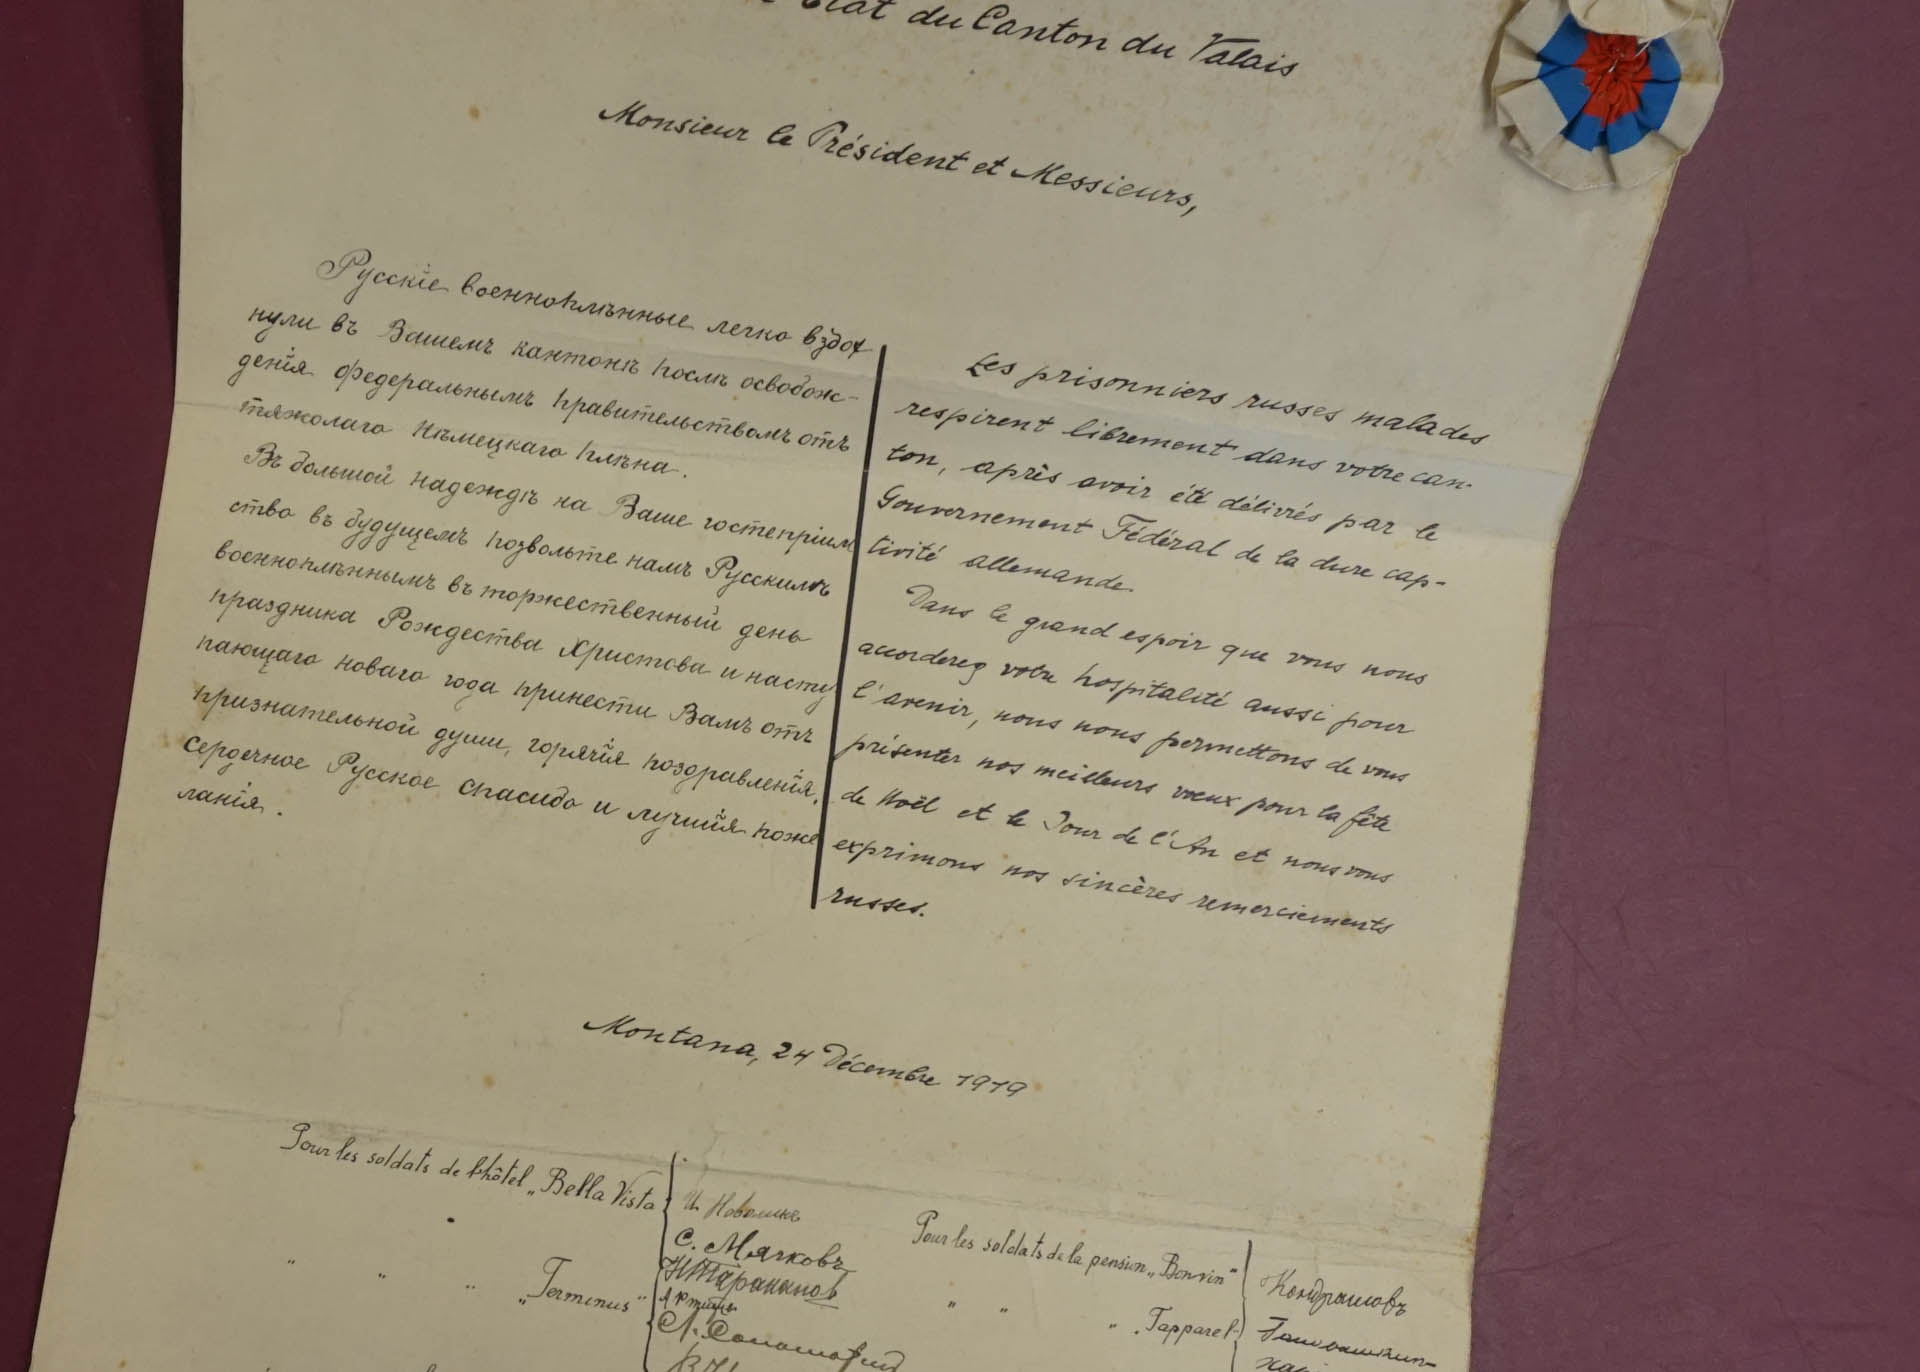 Etat du Canton du Valais
Monsieur le Président et Messieurs,
Русскіе военноплѣнные легко вздох
нули въ Вашемъ кантонѣ послѣ освобож-
денія федеральнымъ правительствомъ отъ
тяжолаго нѣмецкаго плѣна.
Въ большой надеждѣ на Ваше гостепріим
ство въ будущемъ позвольте намъ Русскимъ
военноплѣннымъ въ торжественный день
праздника Рождества Христова и насту
пающаго новаго года принести Вамъ отъ
признательной души, горячія поздравленія,
сердечное Русское спасибо и лучшія поже
ланія.
Les prisonniers russes malades
respirent librement dans votre can-
ton, après avoir été délivrés par le
Gouvernement Fédéral de la dure cap-
tivité allemande.
Dans le grand espoir que vous nous
accorderez votre hospitalité aussi pour
l'avenir, nous nous permettons de vous
présenter nos meilleurs vœux pour la fête
de Noël et le Jour de l'An et nous vous
exprimons nos sincères remerciements
russes.
Montana, 24 Décembre 1919
Pour les soldats de l'hôtel „Bella Vista
И. Новалик
С. Мячковъ
" " " „Terminus"
Н Таранановъ
Pour les soldats de la pension „Bonvin"
Кондрашовъ
" " " „Tapparel